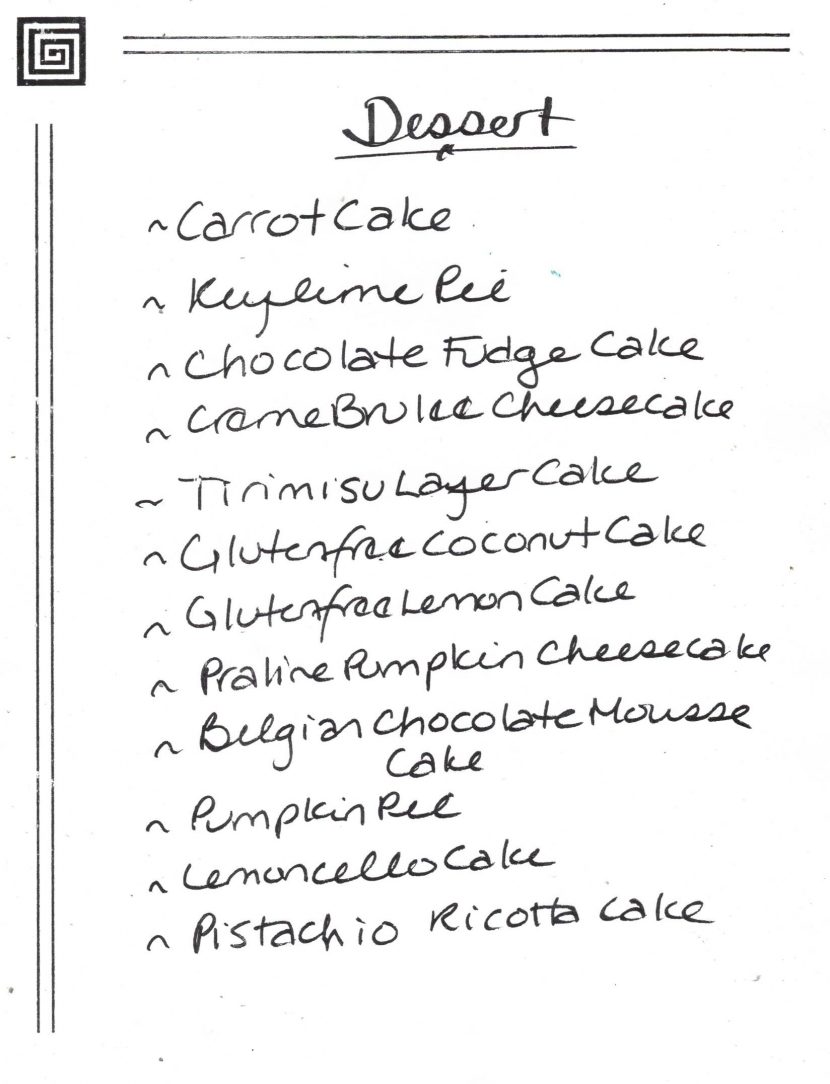 Dessert
~ Carrot Cake
~ Keylime Pie
~ Chocolate Fudge Cake
~ Creme Brulee Cheesecake
~ Tirimisu Layer Cake
~ Glutenfree Coconut Cake
~ Glutenfree Lemon Cake
~ Praline Pumpkin Cheesecake
~ Belgian Chocolate Mousse
Cake
~ Pumpkin Pie
~ Lemoncello Cake
~ Pistachio Ricotta Cake